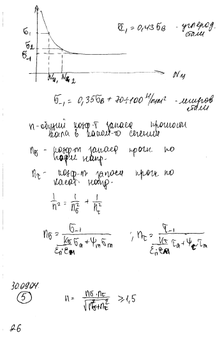 σ₁
σ₂
σ₋₁
N₁ N₂ Nц
σ₋₁ = 0,43σв - углерод.
стали
σ₋₁ = 0,35σв + 70÷100 Н/мм² - легиров
стали
n - общий коэф-т запаса прочности
вала в сечении
nσ - коэф-т запаса прочн по
норм. напр.
nτ - коэф-т запаса прочн по
касат. напр.
1/n² = 1/nσ² + 1/nτ²
nσ = σ₋₁ / (Kσ/(εп εм) σa + Ψσ σm) ; nτ = τ₋₁ / (Kτ/(εп εм) τa + Ψτ τm)
300804
5
n = nσ·nτ / √(nσ²+nτ²) ≥ 1,5
26